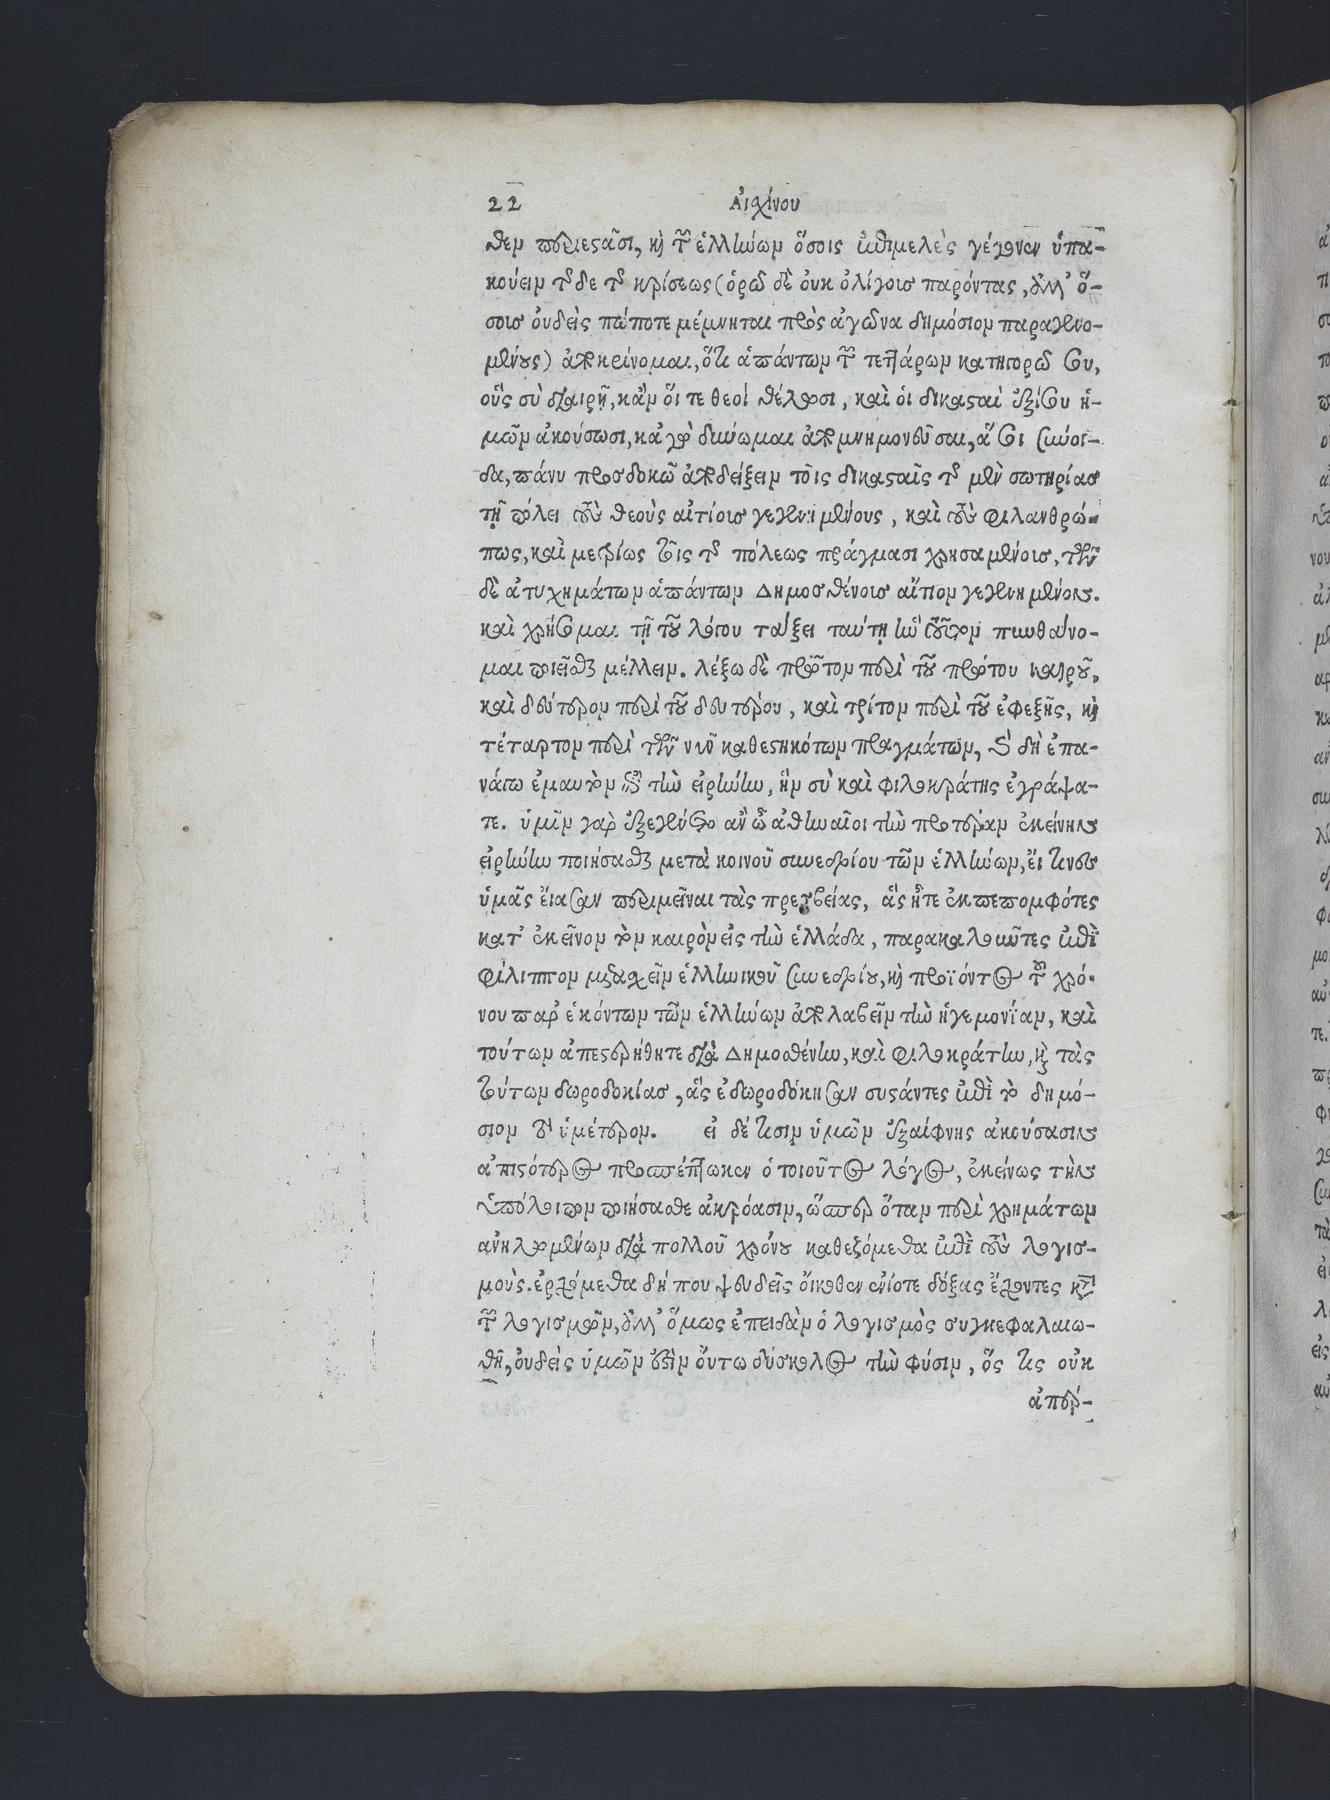 22 Αἰσχίνου
θεν περιεστᾶσι, καὶ τῶν ἑλλήνων ὅσοις ἐπιμελὲς γέγονεν ὑπα-
κούειν τῆσδε τῆς κρίσεως (ὁρῶ δὲ οὐκ ὀλίγοις παρόντας, ἀλλ' ὅ-
σοις οὐδεὶς πώποτε μέμνηται πρὸς ἀγῶνα δημόσιον παραγενο-
μένους) ἀποκρίνομαι, ὅτι ἁπάντων τῶν τεττάρων κατηγορῶ σου,
οὓς σὺ διαιρῇ, κἂν οἵ τε θεοὶ θέλωσι, καὶ οἱ δικασταὶ ἐξίσου ἡ-
μῶν ἀκούσωσι, κἀγὼ δύνωμαι ἀπομνημονεῦσαι, ἅ σοι σύνοι-
δα, πάνυ προσδοκῶ ἀποδείξειν τοῖς δικασταῖς τῆς μὲν σωτηρίας
τῇ πόλει τοὺς θεοὺς αἰτίοις γεγενημένους, καὶ τοὺς φιλανθρώ-
πως, καὶ μετρίως τοῖς τῆς πόλεως πράγμασι χρησαμένοις, τῶν
δὲ ἀτυχημάτων ἁπάντων Δημοσθένοις αἴτιον γεγενημένοις.
καὶ χρήσομαι τῇ τοῦ λόγου τάξει ταύτῃ ᾗ τοῦτον πυνθάνο-
μαι ποιεῖσθαι μέλλειν. λέξω δὲ πρῶτον περὶ τοῦ πρώτου καιροῦ,
καὶ δεύτερον περὶ τοῦ δευτέρου, καὶ τρίτον περὶ τοῦ ἐφεξῆς, καὶ
τέταρτον περὶ τῶν νῦν καθεστηκότων πραγμάτων, καὶ δὴ ἐπα-
νάγω ἐμαυτὸν ἐπὶ τὴν εἰρήνην, ἣν σὺ καὶ φιλοκράτης ἐγράψα-
τε. ὑμῖν γὰρ ἐξεγένετο ἂν ὦ ἀθηναῖοι τὴν προτέραν ἐκείνην
εἰρήνην ποιήσασθαι μετὰ κοινοῦ συνεδρίου τῶν ἑλλήνων, εἴ τινες
ὑμᾶς εἴασαν περιμεῖναι τὰς πρεσβείας, ἃς ἦτε ἐκπεπομφότες
κατ' ἐκεῖνον τὸν καιρὸν εἰς τὴν ἑλλάδα, παρακαλοῦντες ἐπὶ
Φίλιππον μετασχεῖν ἑλληνικοῦ συνεδρίου, καὶ προϊόντος τοῦ χρό-
νου παρ' ἑκόντων τῶν ἑλλήνων ἀπολαβεῖν τὴν ἡγεμονίαν, καὶ
τούτων ἀπεστερήθητε διὰ Δημοσθένην, καὶ Φιλοκράτην, καὶ τὰς
τούτων δωροδοκίας, ἃς ἐδωροδόκησαν συστάντες ἐπὶ τὸ δημό-
σιον τὸ ὑμέτερον. εἰ δέ τισιν ὑμῶν ἐξαίφνης ἀκούσασιν
ἀπιστότερος προσπέπτωκεν ὁ τοιοῦτος λόγος, ἐκείνως τὴν
ὑπόλοιπον ποιήσασθε ἀκρόασιν, ὥσπερ ὅταν περὶ χρημάτων
ἀνηλωμένων διὰ πολλοῦ χρόνου καθεζόμεθα ἐπὶ τοὺς λογισ-
μούς. ἐρχόμεθα δή που ψευδεῖς οἴκοθεν ἐνίοτε δόξας ἔχοντες κατὰ
τῶν λογισμῶν, ἀλλ' ὅμως ἐπειδὰν ὁ λογισμὸς συγκεφαλαιω-
θῇ, οὐδεὶς ὑμῶν ἐστὶν οὕτω δύσκολος τὴν φύσιν, ὅς τις οὐκ
ἀπέρ-